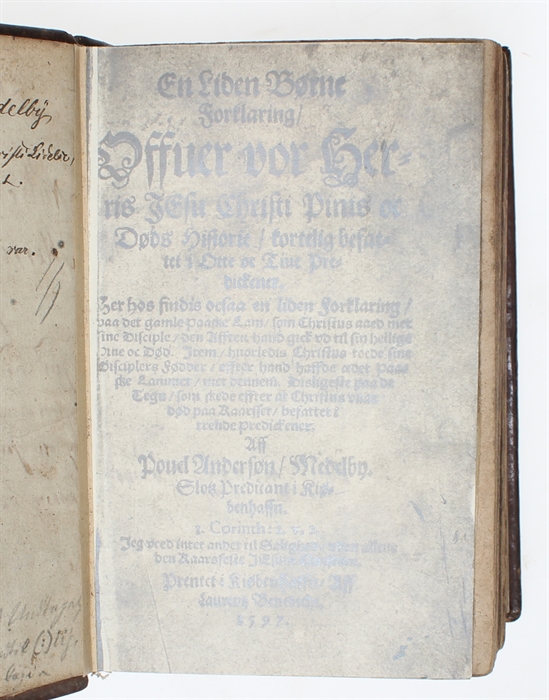 delby
isti Lidelse,
var.
En Liden Børne
Forklaring/
Offuer vor Her-
ris JEsu Christi Pinis oc
Døds Historie/ kortelig befat-
tet i Otte oc Tiue Pre-
dickener.
Her hos findis ocsaa en liden Forklaring/
paa det gamle Paaske Lam/ som Christus aad met
sine Disciple/ den Afften hand gick vd til sin hellige
Pine oc Død. Item/ huorledis Christus toede sine
Disciplers Fødder/ effter hand haffde ædet Paa-
ske Lammet/ met dennem. Disligeste paa de
Tegn/ som skede effter at Christus vaar
død paa Kaarsset/ befattet i
predickener.
Aff
Pouel Andersøn/ Medelby.
Slotz Predicant i Kiø-
benhaffn.
1. Corinth: 2. v. 2.
Jeg veed intet andet til
den Kaarsfeste JEsum
Prentet i Kiøbenhaffn/ Aff
Laurentz Benedicht.
1597.